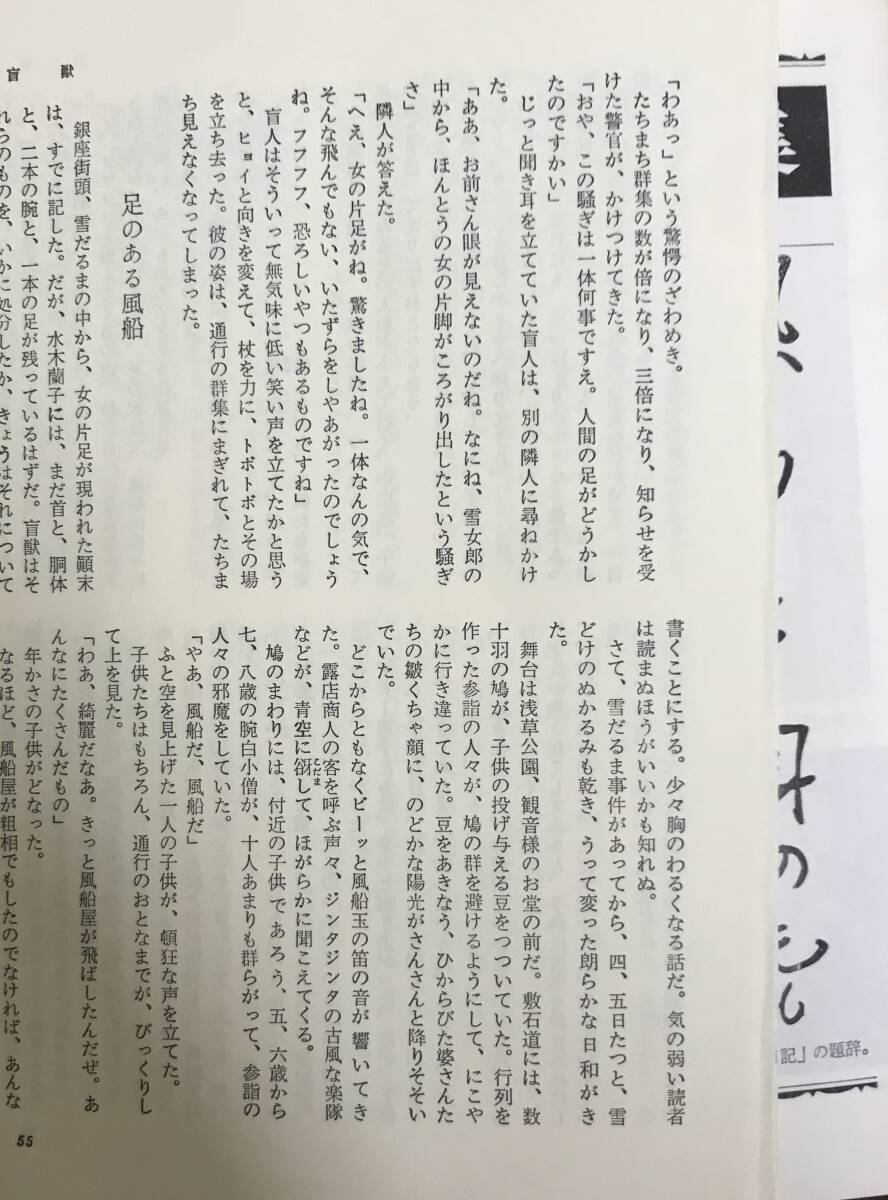 盲獣
「わあっ」という驚愕のざわめき。
たちまち群集の数が倍になり、三倍になり、知らせを受
けた警官が、かけつけてきた。
「おや、この騒ぎは一体何事ですえ。人間の足がどうかし
たのですかい」
じっと聞き耳を立てていた盲人は、別の隣人に尋ねかけ
た。
「ああ、お前さん眼が見えないのだね。なにね、雪女郎の
中から、ほんとうの女の片脚がころがり出したという騒ぎ
さ」
隣人が答えた。
「へえ、女の片足がね。驚きましたね。一体なんの気で、
そんな飛んでもない、いたずらをしやあがったのでしょう
ね。フフフフ、恐ろしいやつもあるものですね」
盲人はそういって無気味に低い笑い声を立てたかと思う
と、ヒョイと向きを変えて、杖を力に、トボトボとその場
を立ち去った。彼の姿は、通行の群集にまぎれて、たちま
ち見えなくなってしまった。
足のある風船
銀座街頭、雪だるまの中から、女の片足が現われた顚末
は、すでに記した。だが、水木蘭子には、まだ首と、胴体
と、二本の腕と、一本の足が残っているはずだ。盲獣はそ
れらのものを、いかに処分したか、きょうはそれについて
書くことにする。少々胸のわるくなる話だ。気の弱い読者
は読まぬほうがいいかも知れぬ。
さて、雪だるま事件があってから、四、五日たつと、雪
どけのぬかるみも乾き、うって変った朗らかな日和がき
た。
舞台は浅草公園、観音様のお堂の前だ。敷石道には、数
十羽の鳩が、子供の投げ与える豆をつついていた。行列を
作った参詣の人々が、鳩の群を避けるようにして、にこや
かに行き違っていた。豆をあきなう、ひからびた婆さんた
ちの皺くちゃ顔に、のどかな陽光がさんさんと降りそそい
でいた。
どこからともなくピーッと風船玉の笛の音が響いてき
た。露店商人の客を呼ぶ声々、ジンタジンタの古風な楽隊
などが、青空に谺こだまして、ほがらかに聞こえてくる。
鳩のまわりには、付近の子供であろう、五、六歳から
七、八歳の腕白小僧が、十人あまりも群らがって、参詣の
人々の邪魔をしていた。
「やあ、風船だ、風船だ」
ふと空を見上げた一人の子供が、頓狂な声を立てた。
子供たちはもちろん、通行のおとなまでが、びっくりし
て上を見た。
「わあ、綺麗だなあ。きっと風船屋が飛ばしたんだぜ。あ
んなにたくさんだもの」
年かさの子供がどなった。
なるほど、風船屋が粗相でもしたのでなければ、あんな
55
集
記」の題辞。